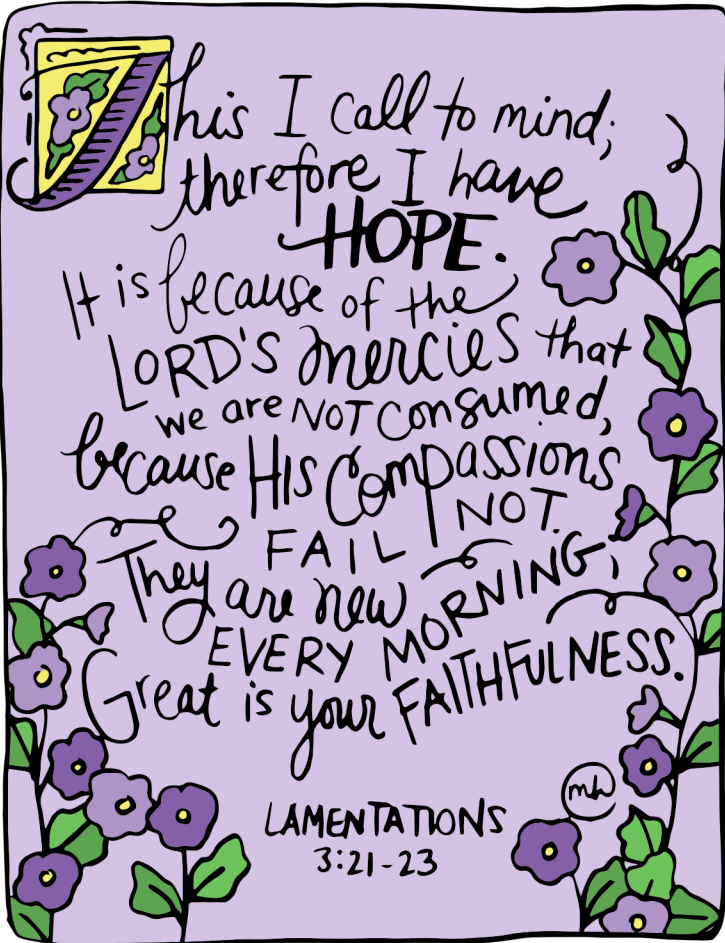 This I call to mind;
therefore I have
HOPE.
It is because of the
LORD'S mercies that
we are NOT consumed,
because HIS Compassions
FAIL NOT.
They are new
EVERY MORNING;
Great is your FAITHFULNESS.
LAMENTATIONS
3:21-23
mh